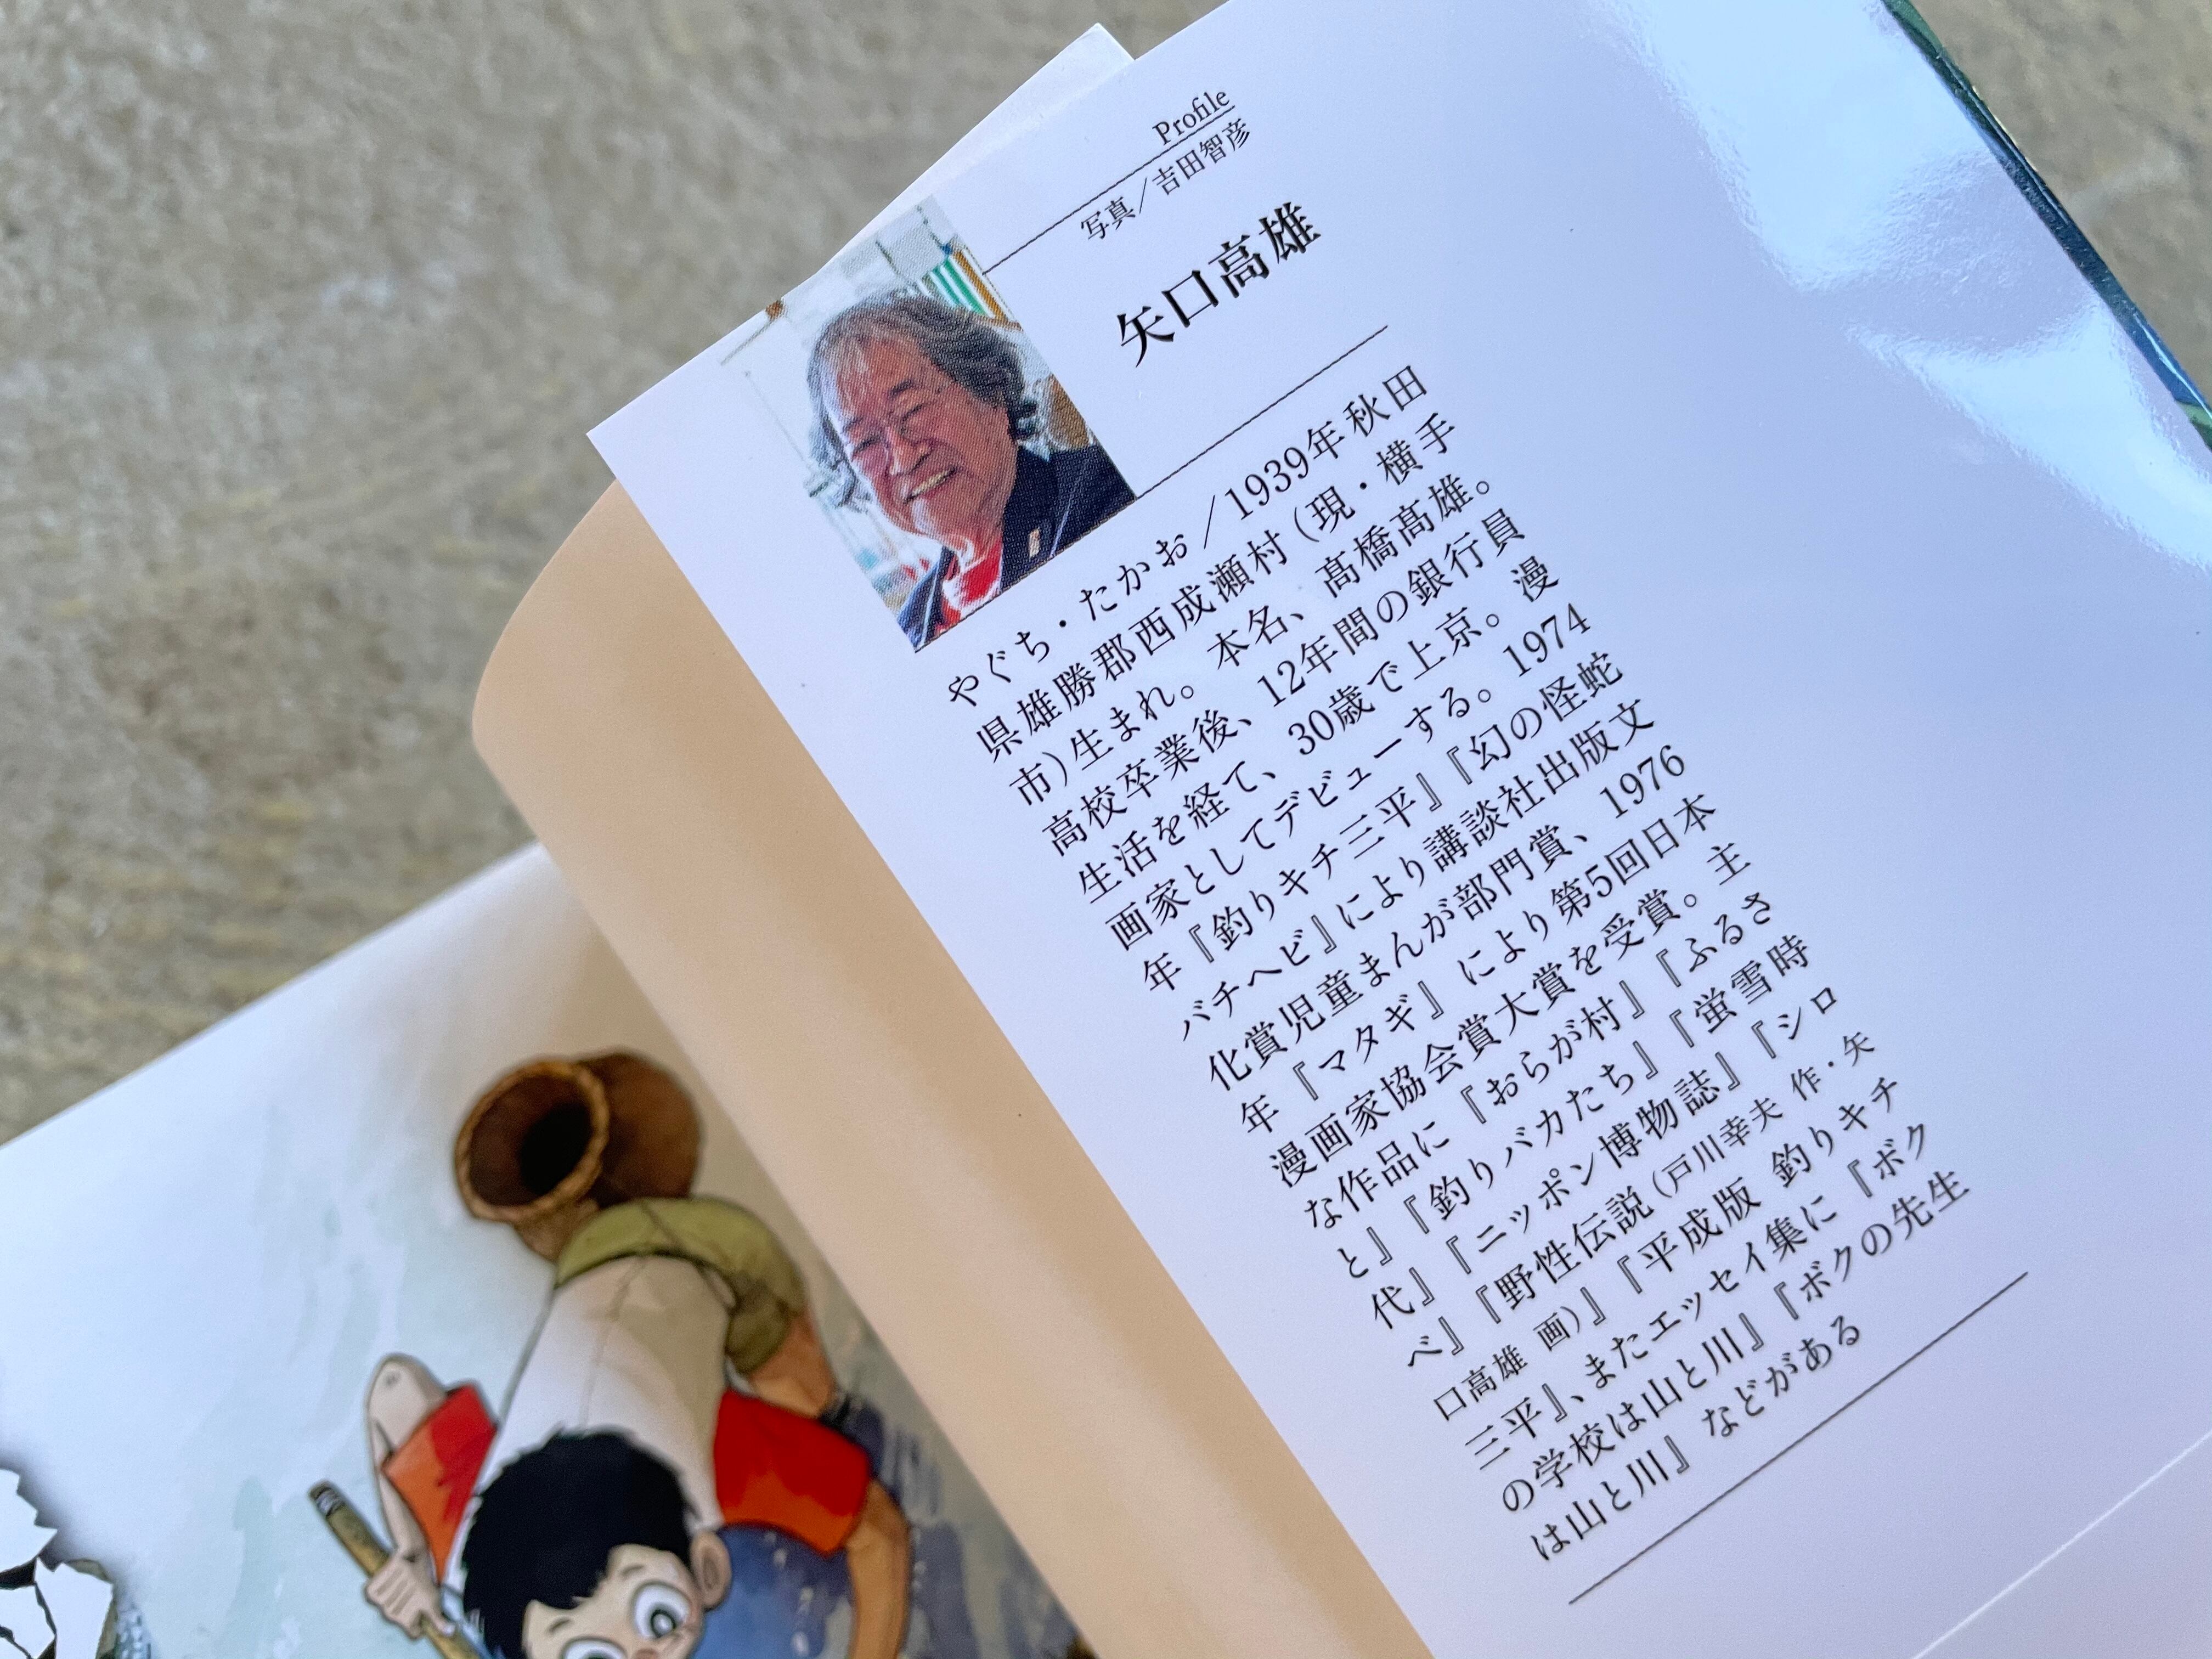 Profile
写真／吉田智彦
矢口高雄
やぐち・たかお／1939年秋田
県雄勝郡西成瀬村（現・横手
市）生まれ。本名、髙橋髙雄。
高校卒業後、12年間の銀行員
生活を経て、30歳で上京。漫
画家としてデビューする。1974
年『釣りキチ三平』『幻の怪蛇
バチヘビ』により講談社出版文
化賞児童まんが部門賞、1976
年『マタギ』により第5回日本
漫画家協会賞大賞を受賞。主
な作品に『おらが村』『ふるさ
と』『釣りバカたち』『蛍雪時
代』『ニッポン博物誌』『シロ
べ』『野性伝説（戸川幸夫 作・矢
口高雄 画）』『平成版 釣りキチ
三平』、またエッセイ集に『ボク
の学校は山と川』『ボクの先生
は山と川』などがある